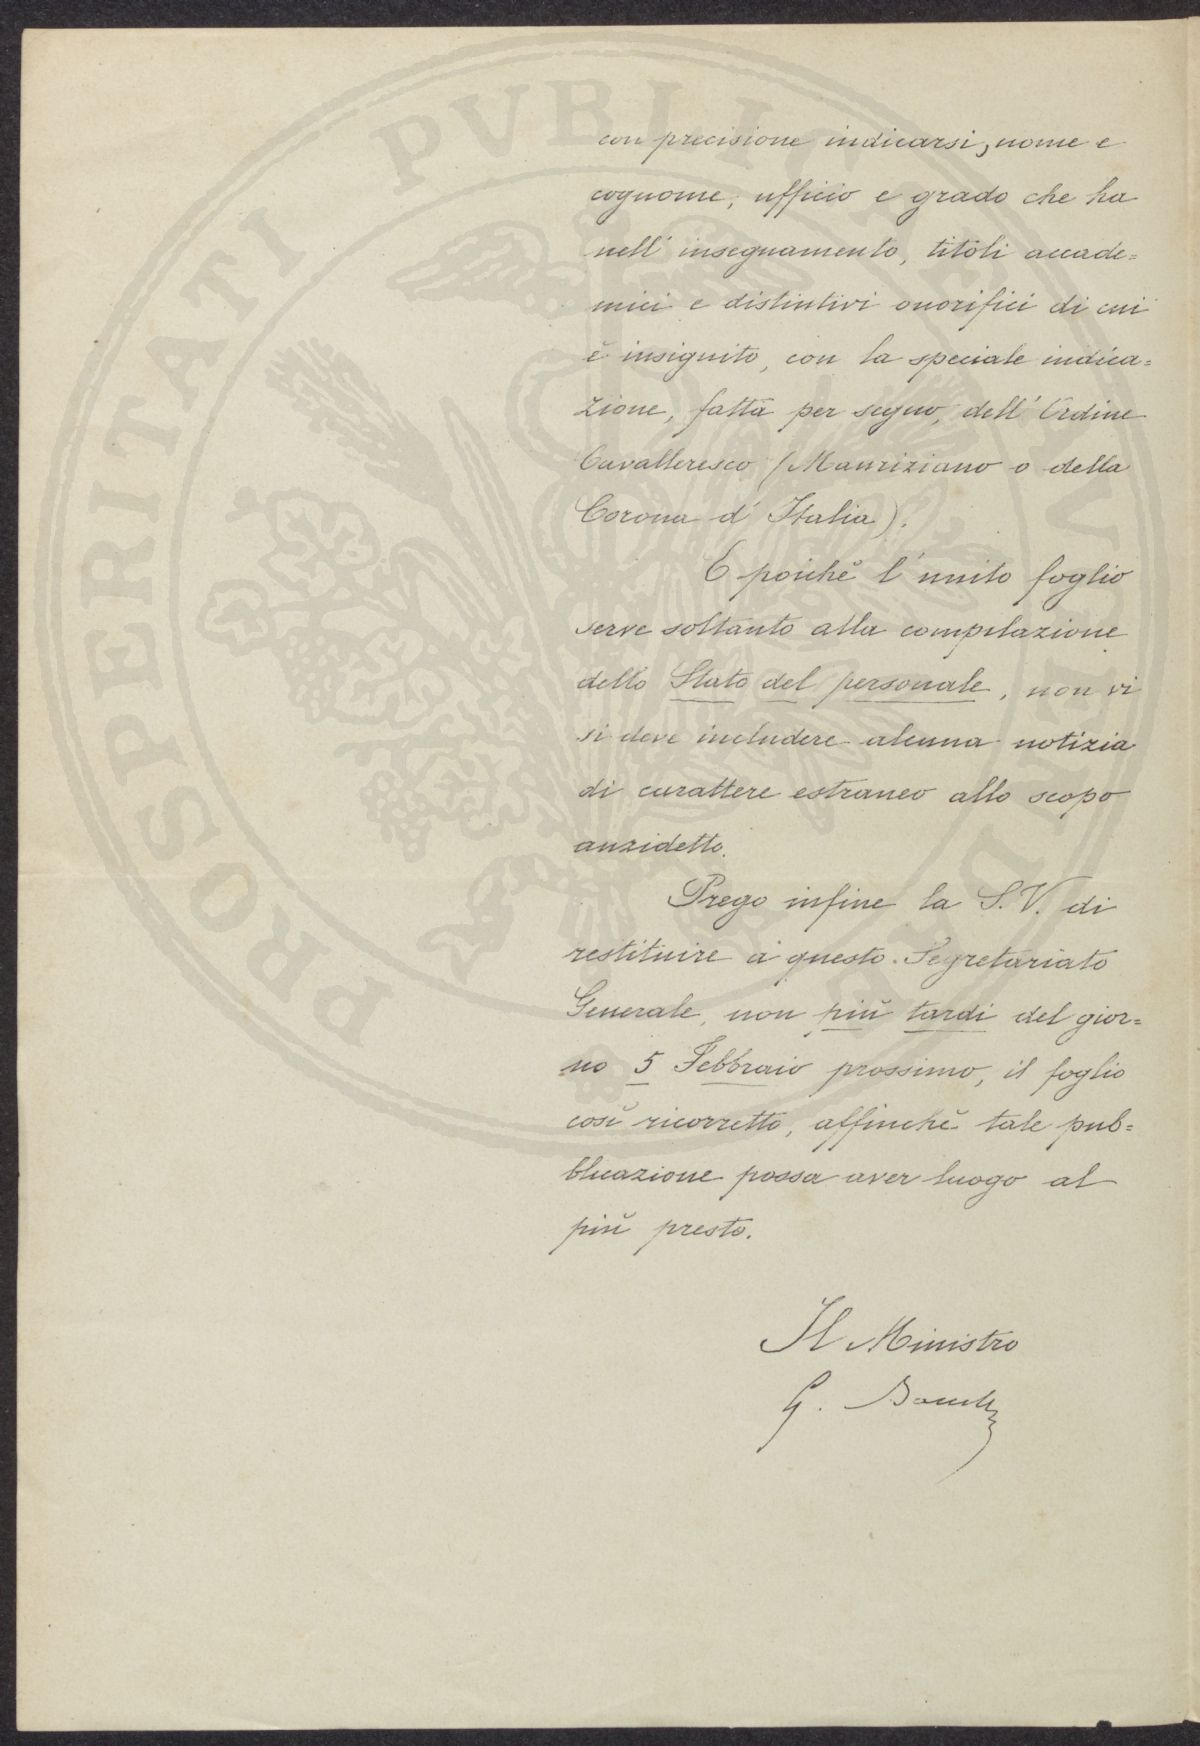 con precisione indicarsi, nome e
cognome, ufficio e grado che ha
nell' insegnamento, titoli accade=
mici e distintivi onorifici di cui
è insignito, con la speciale indica=
zione, fatta per segno, dell' Ordine
Cavalleresco (Mauriziano o della
Corona d' Italia).
E poichè l' unito foglio
serve soltanto alla compilazione
dello Stato del personale, non vi
si deve includere alcuna notizia
di carattere estraneo allo scopo
anzidetto.
Prego infine la S. V. di
restituire a questo Segretariato
Generale, non più tardi del gior=
no 5 Febbraio prossimo, il foglio
così ricorretto, affinchè tale pub=
blicazione possa aver luogo al
più presto.
Il Ministro
G. Baccelli
PROSPERITATI PVBLI